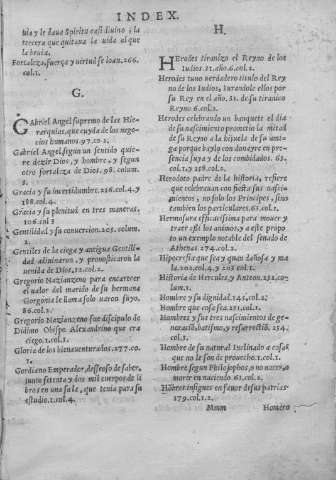 INDEX.
uia y le daua Spiritu casi diuino : la
tercera que quitaua la uida al que
la beuia.
Fortaleza, fuerça y uertud se loan. 266.
col.1.
G.
Gabriel Angel supremo de las Hie-
rarquias, que cuyda de los nego-
cios humanos. 97. co.2.
Gabriel Angel, segun un sentido quie-
re dezir Dios, y hombre, y segun
otro fortaleza de Dios. 98. colum.
2.
Gracia y su incertidumbre. 226.col.4. y
188.col.4.
Gracia y su plenitud en tres maneras.
106.col 2
Gentilidad y su conuersion. 205. colum.
2.
Gentiles de la ciega y antigua Gentili-
dad adiuinaron, y pronosticaron la
uenida de Dios, 12.col.2.
Gregorio Nazianzeno para encarecer
el ualor del marido de su hermana
Gorgonia le llamo solo uaron suyo.
86.col.2.
Gregorio Nazianzeno fue discipulo de
Didimo Obispo Alexandrino que era
ciego.1.col.1.
Gloria de los bienauenturados.277.co.
1.
Gordiano Emperador, desseoso de saber,
junto setenta y dos mil cuerpos de li
bros en una sala, que tenia para su
estudio.1.col.4.
H.
Herodes tiranizo el Reyno de los
Iudios.31.año.6.col.1.
Herodes tuuo uerdadero titulo del Rey
no de los Iudios, Iurandole ellos por
su Rey en el año.31. de su tiranico
Reyno 6.col.1.
Herodes celebrando un banquete el dia
de su nascimiento prometio la mitad
de su Reyno a la hijuela de su ami-
ga porque baylo con donayre en pre-
sencia suya y de los combidados. 63.
col.1.y 258.col.1.
Herodoto padre de la historia, refiere
que celebrauan con fiesta sus naci-
mientos, no solo los Principes, sino
tambien los particulares.63.col.1.
Hermosura efficacissima para mouer y
traer assi los animos, y a este propo
sito un exemplo notable del senado de
Athenas .274.col.2.
Hipocresia que sea y quan dañosa y ma
la.202.col.4. y 203 col.1.
Historia de Hercules, y Anteon.232.co-
lum.1.
Hombre y su dignidad.145.col.2.
Hombre que cosa sea.251.col.1.
Hombres y sus tres nascimientos de ge-
neracio, batismo, y resurrectiõ. 254.
col.1.
Hombre de su natural Inclinado a cosas
que no le son de prouecho.1.col.1.
Hombre segun Philosophos, o no nacer, o
morir en naciendo. 61.col.2.
Hõbres insignes en fauor de sus patrias
279.col.1.2.
Mmm Homero